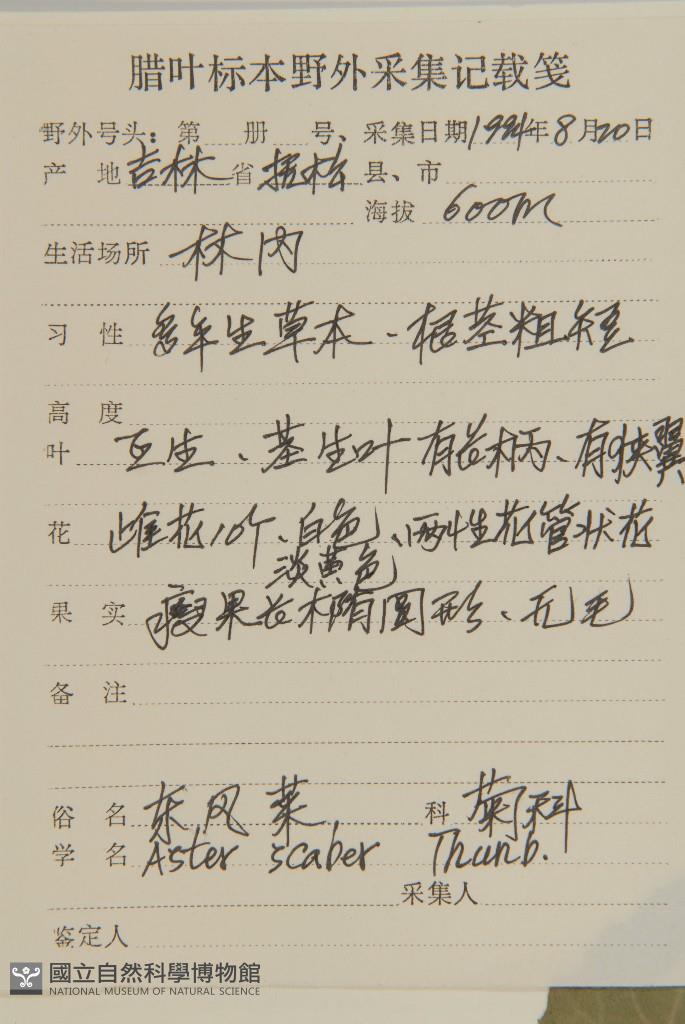 腊叶标本野外采集记载笺
野外号头：第 册 号、采集日期1994年8月20日
产 地 吉林省 抚松 县、市
海拔 600m
生活场所 林内
习 性 多年生草本、根茎粗短
高 度
叶 互生、基生叶有长柄、有狭翼
花 雌花10个、白色、两性花管状花
淡黄色
果 实 瘦果长椭圆形、无毛
备 注
俗 名 东风菜 科 菊科
学 名 Aster scaber Thunb.
采集人
鉴定人
國立自然科學博物館
NATIONAL MUSEUM OF NATURAL SCIENCE